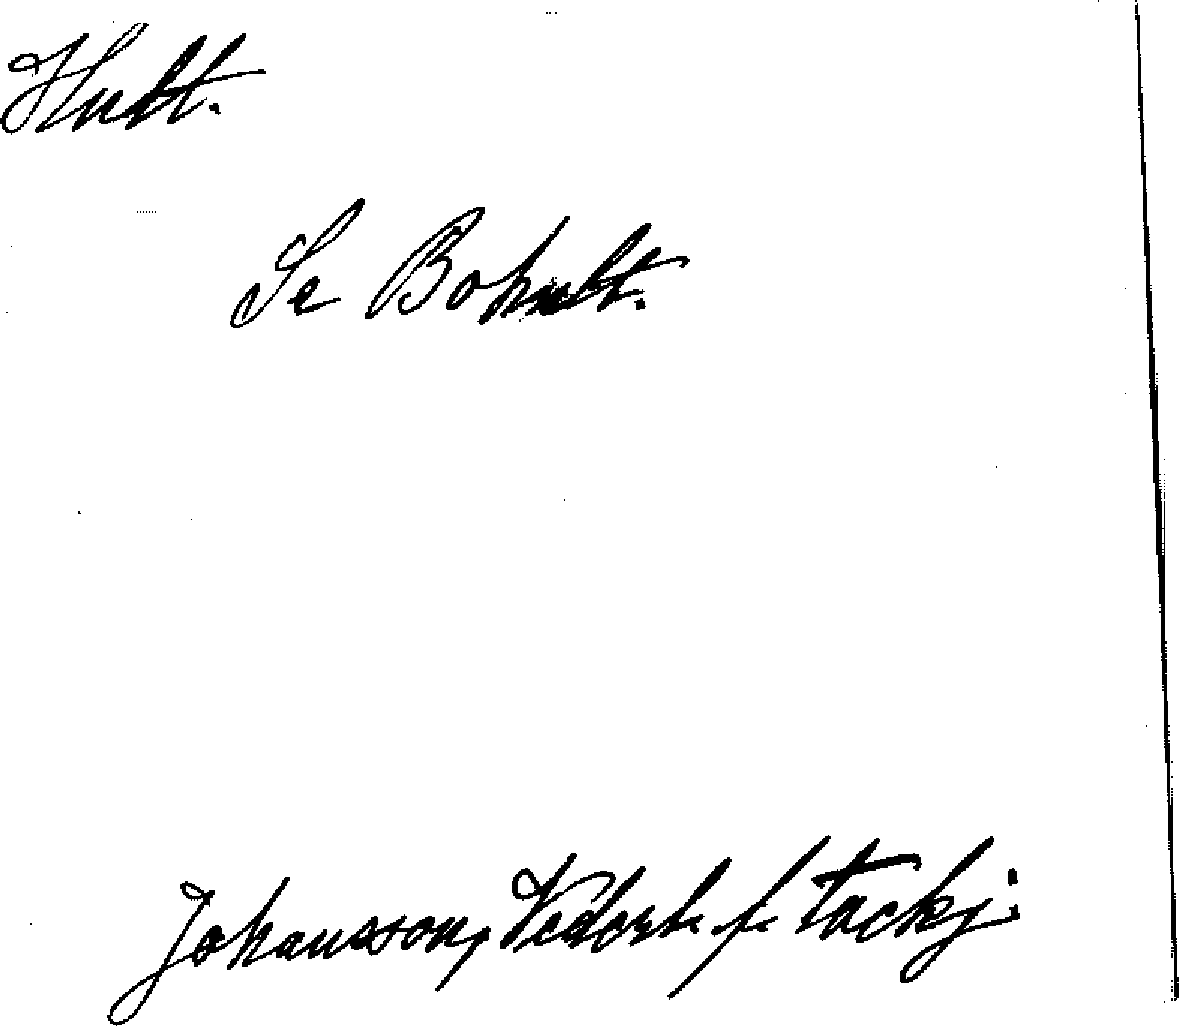 Hult.
Se Bohult.
Johansson, Vedork. f. Tackj.